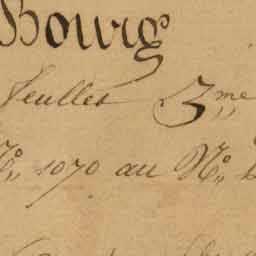 Bourg
feuilles 3me
No 1070 au No